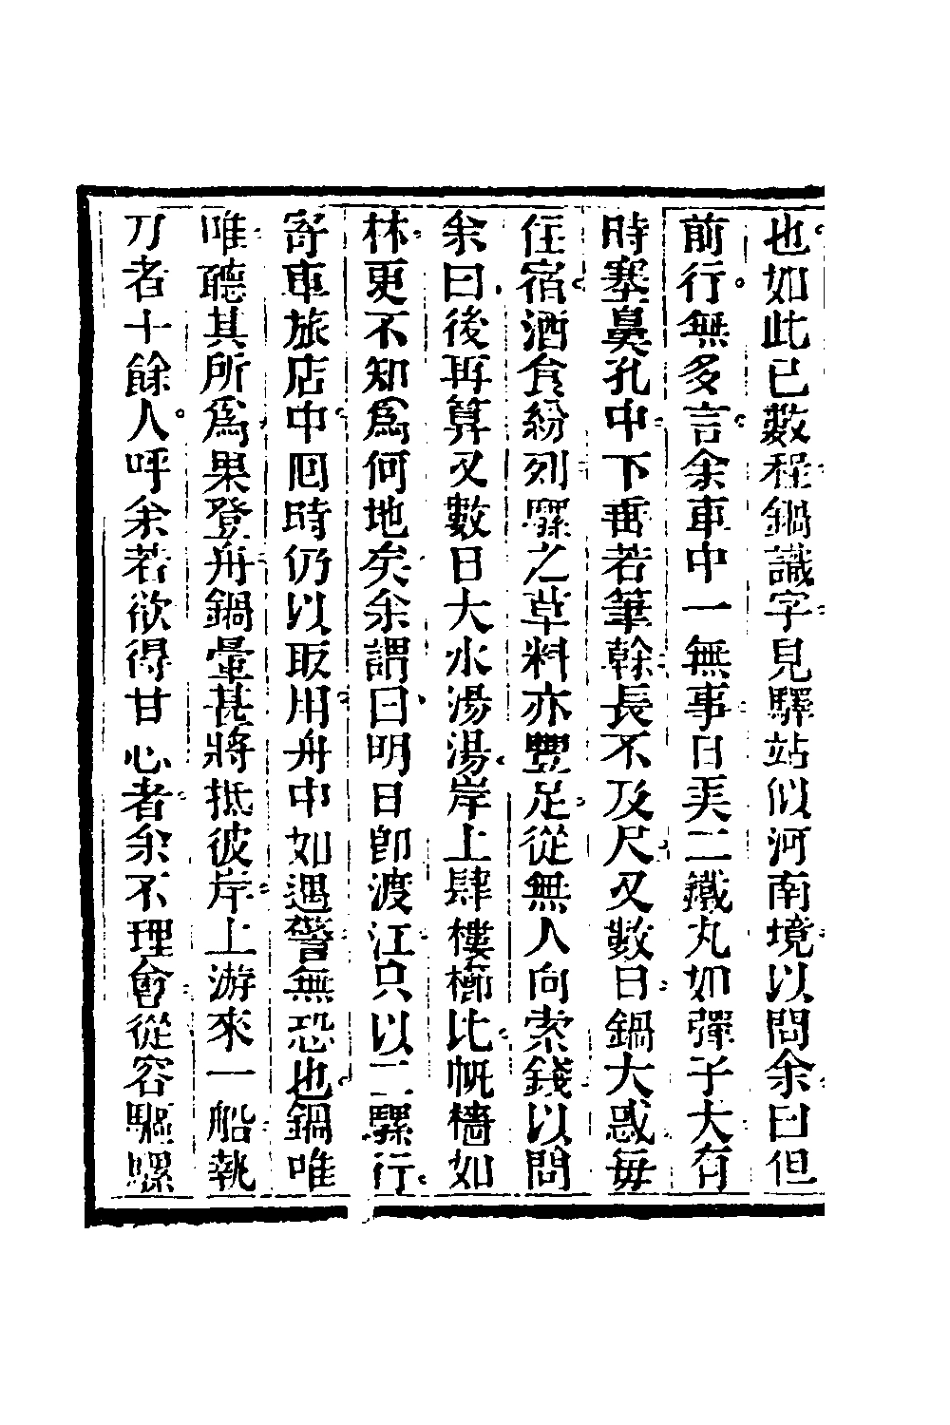 也如此已數程鍋識字見驛站似河南境以問余曰但
前行無多言余車中一無事日弄二鐵丸如彈子大有
時塞鼻孔中下垂若筆幹長不及尺又數日鍋大惑每
住宿酒食紛列騾之草料亦豐足從無人向索錢以問
余曰後再算又數日大水湯湯岸上肆樓櫛比帆檣如
林更不知爲何地矣余謂曰明日卽渡江只以二騾行
寄車旅店中囘時仍以取用舟中如遇警無恐也鍋唯
唯聽其所爲果登舟鍋暈甚將抵彼岸上游來一船執
刀者十餘人呼余若欲得甘心者余不理會從容驅騾